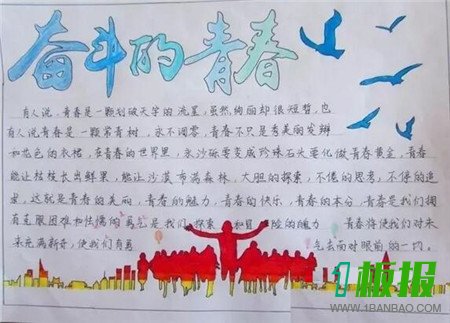 奋斗的青春
有人说,青春是一颗划破天宇的流星,虽然绚丽却很短暂,也
有人说青春是一颗常青树,永不凋零,青春不只是秀美的发辫
和花色的衣裙,在青春的世界里,沙砾要变成珍珠石头要化做青春黄金,青春
能让枯枝长出鲜果,能让沙漠布满森林,大胆的探索,不倦的思考,不停的追
求,这就是青春的美丽,青春的魅力,青春的快乐,青春的本分,青春是我们拥
有克服困难和怯懦的勇气是我们探索和冒险的魄力 青春将使我们对未
来充满新奇,使我们有勇气去面对眼前的一切。
1板报
WWW.1BANBAO.COM